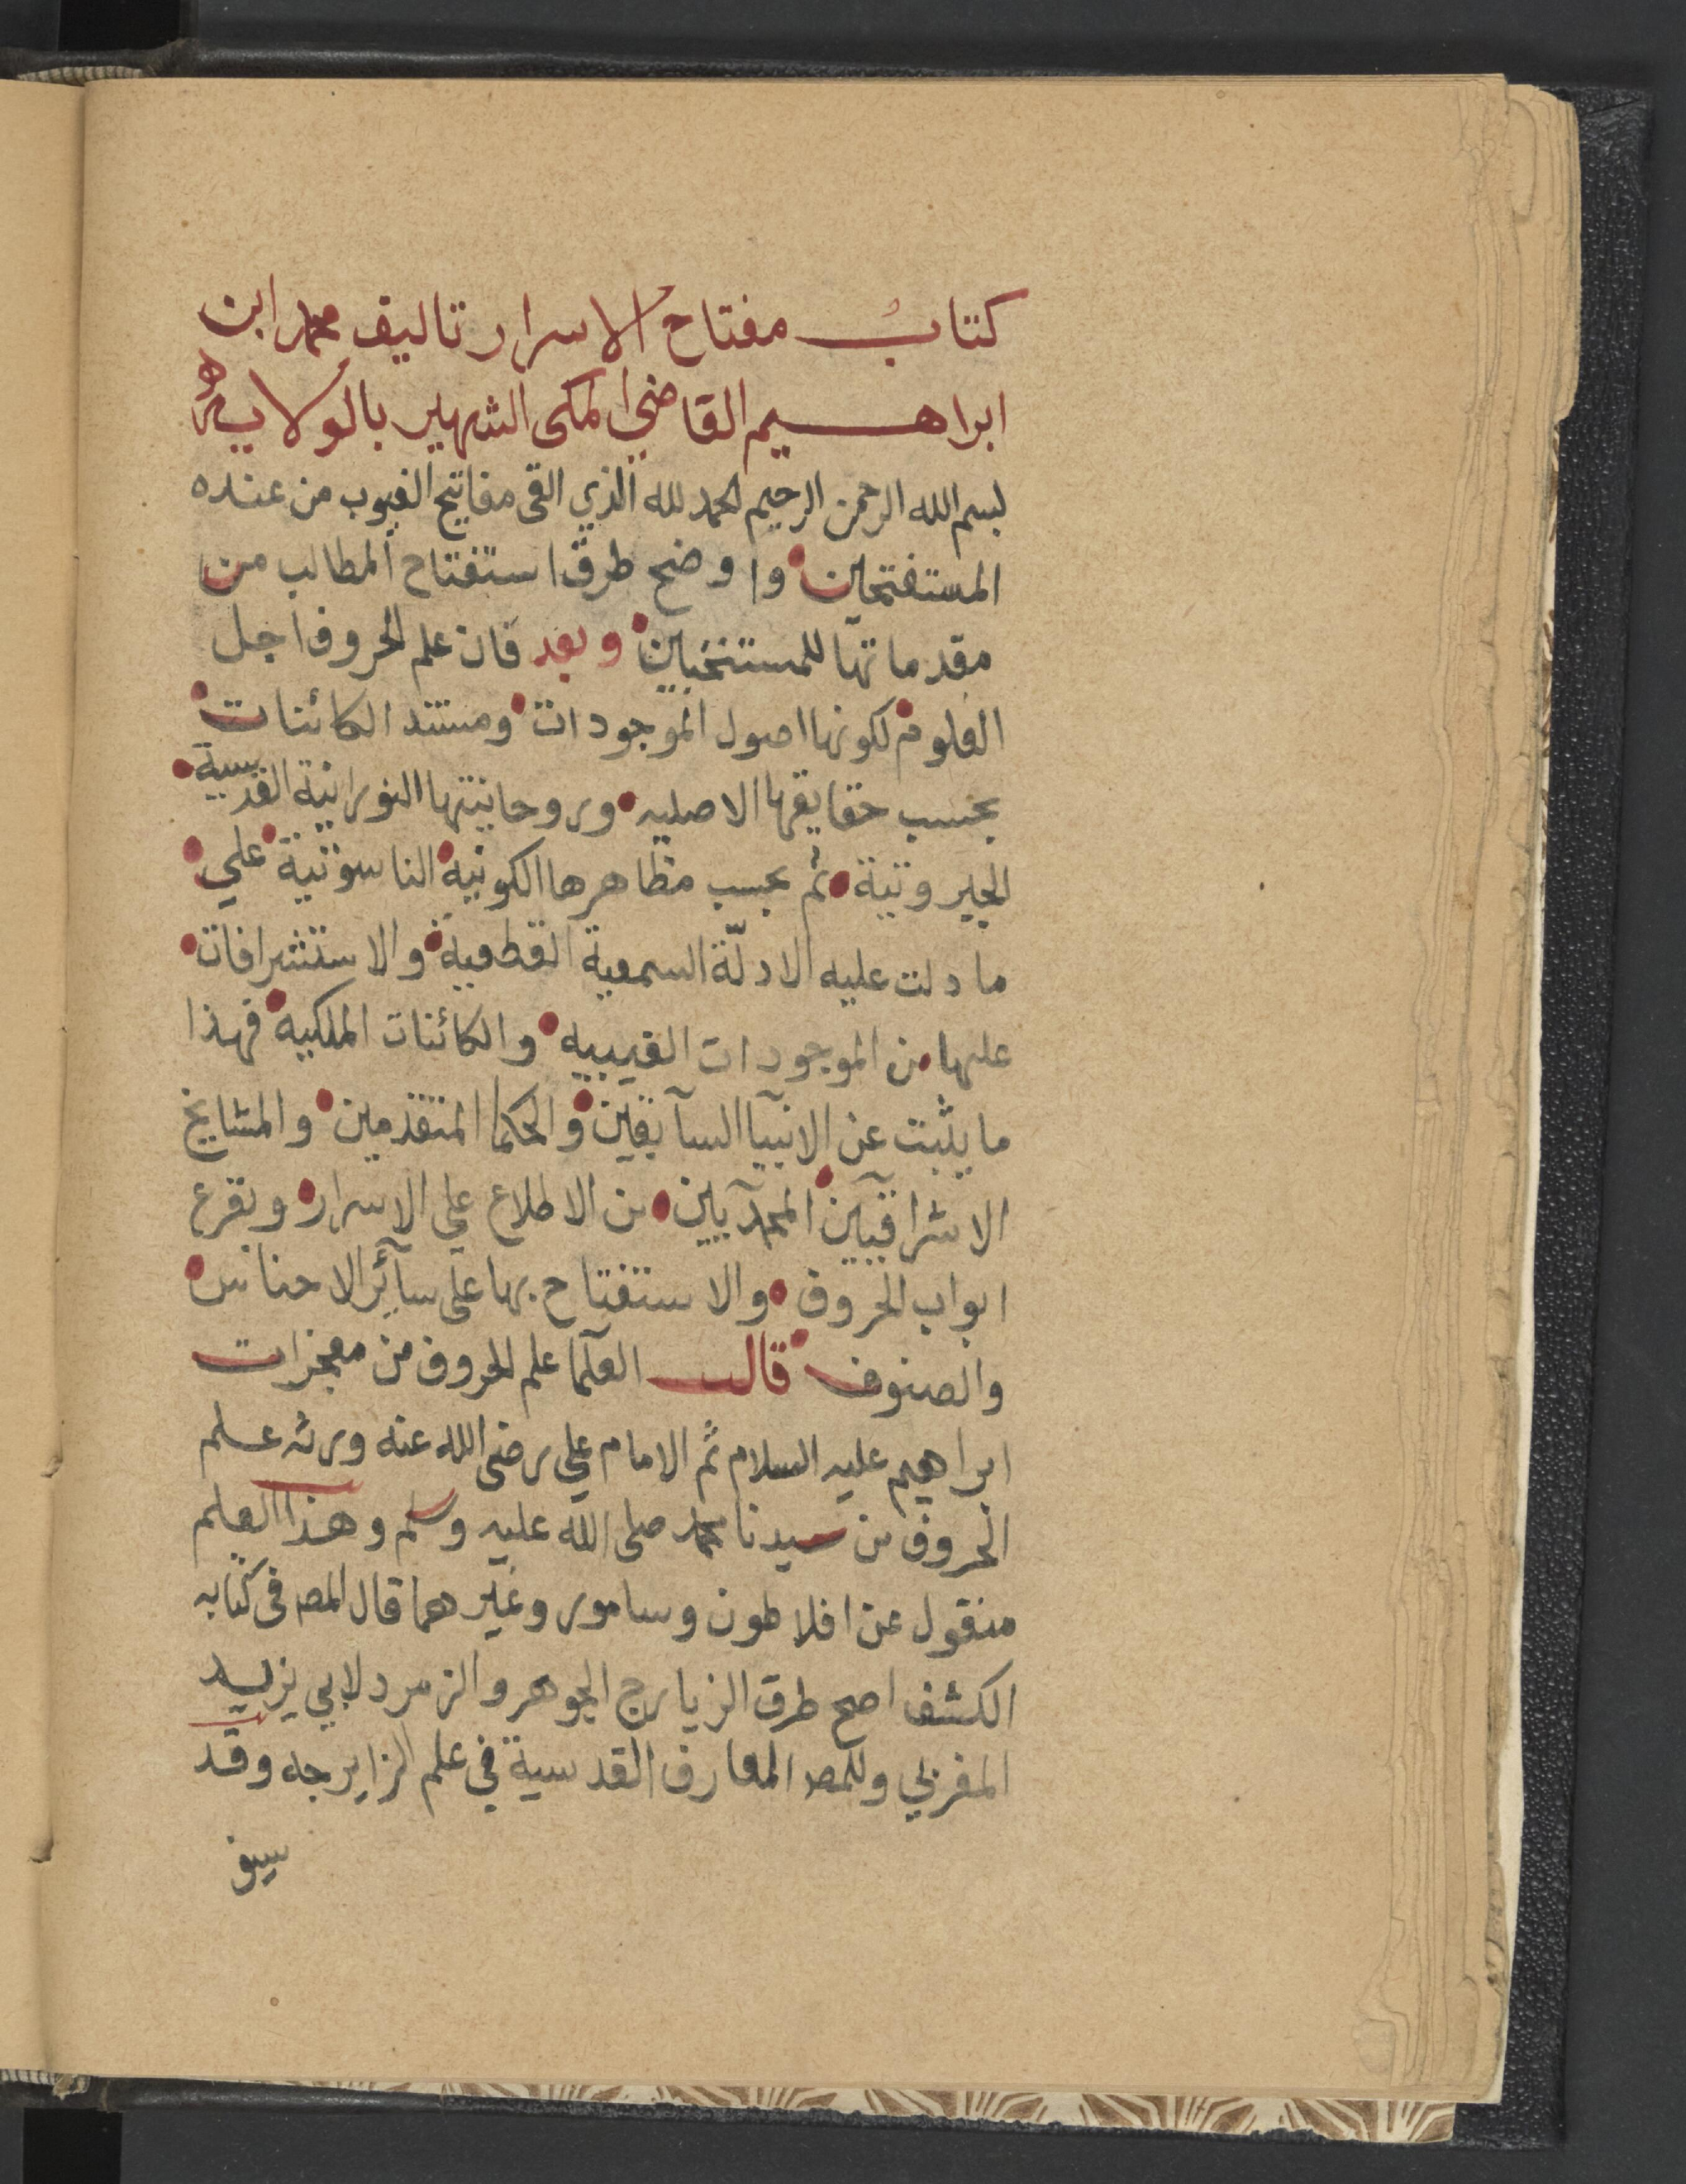 كتاب مفتاح الاسرار تاليف محمد ابن
ابراهيم القاضي المكى الشهير بالولايه
بسم الله الرحمن الرحيم الحمد لله الذي القى مفاتيح الغيوب من عنده
المستفتحين واوضح طرق استفتاح المطالب من
مقدماتها للمستنخبين وبعد فان علم الحروف اجل
العلوم لكونها اصول الموجودات ومستند الكائنات
بحسب حقايقها الاصليه وروحانيتها النورانية القدسية
الجبروتية ثم بحسب مظاهرها الكونية الناسوتية علي
ما دلت عليه الادلّة السمعية القطعية والاستشرافات
عليها من الموجودات الغيبيه والكائنات الملكيه فهذا
ما يثبت عن الانبيا السآبقين والحكما المتقدمين والمشايخ
الاشراقيين المحمديين من الاطلاع علي الاسرار وبقرع
ابواب الحروف والاستفتاح بها على سآئر الاجناس
والصنوف قال العلما علم الحروف من معجزات
ابراهيم عليه السلام ثم الامام علي رضى الله عنه ورث علم
الحروف من سيدنا محمد صلى الله عليه وسلم وهذا العلم
منقول عن افلاطون وسامور وغيرهما قال المص فى كتابه
الكشف اصح طرق الزيارج الجوهر والزمرد لابي يزيد
المغربي وللمص المعارف القدسية في علم الزايرجه وقد